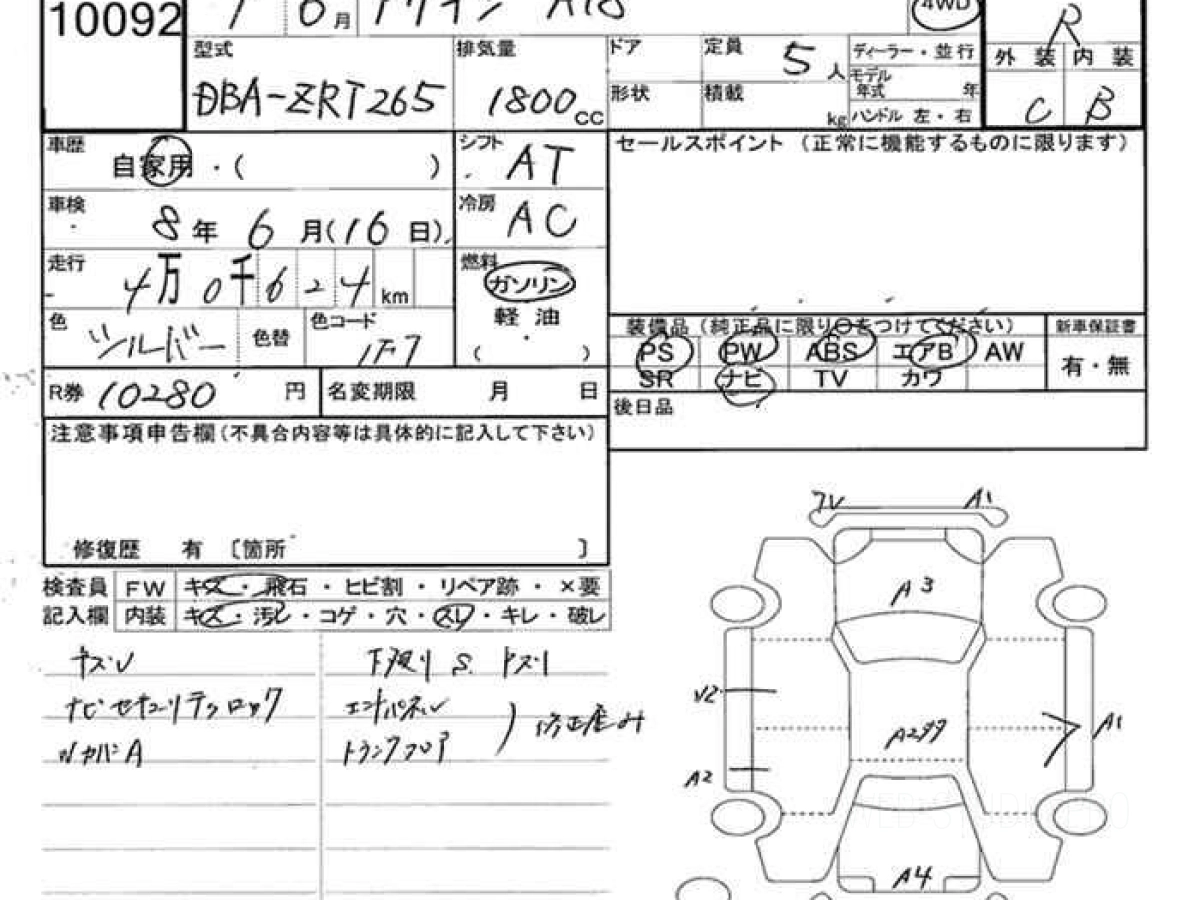 10092
月 アリオン A18
4WD
R
型式 排気量 ドア 定員 5人 ディーラー・並行 外装 内装
DBA-ZRT265 1800cc 形状 積載 kg モデル年式 年 C B
ハンドル 左・右
車歴 自家用・( ) シフト AT セールスポイント (正常に機能するものに限ります)
車検 8年6月(16日) 冷房 AC
走行 4万0千624km 燃料 ガソリン
軽油
( )
色 シルバー 色替 色コード 1F7
装備品(純正品に限り○をつけてください) 新車保証書
PS PW ABS エアB AW 有・無
SR ナビ TV カワ
R券 10280円 名変期限 月 日
後日品
注意事項申告欄(不具合内容等は具体的に記入して下さい)
修復歴 有 〔箇所 〕
検査員 FW キズ・飛石・ヒビ割・リペア跡・×要
記入欄 内装 キズ・汚レ・コゲ・穴・スレ・キレ・破レ
ナビセキュリティロック
エンドパネル
トランクフロア
) 修正歪み
A1
A3
V2
A1
A2
A4